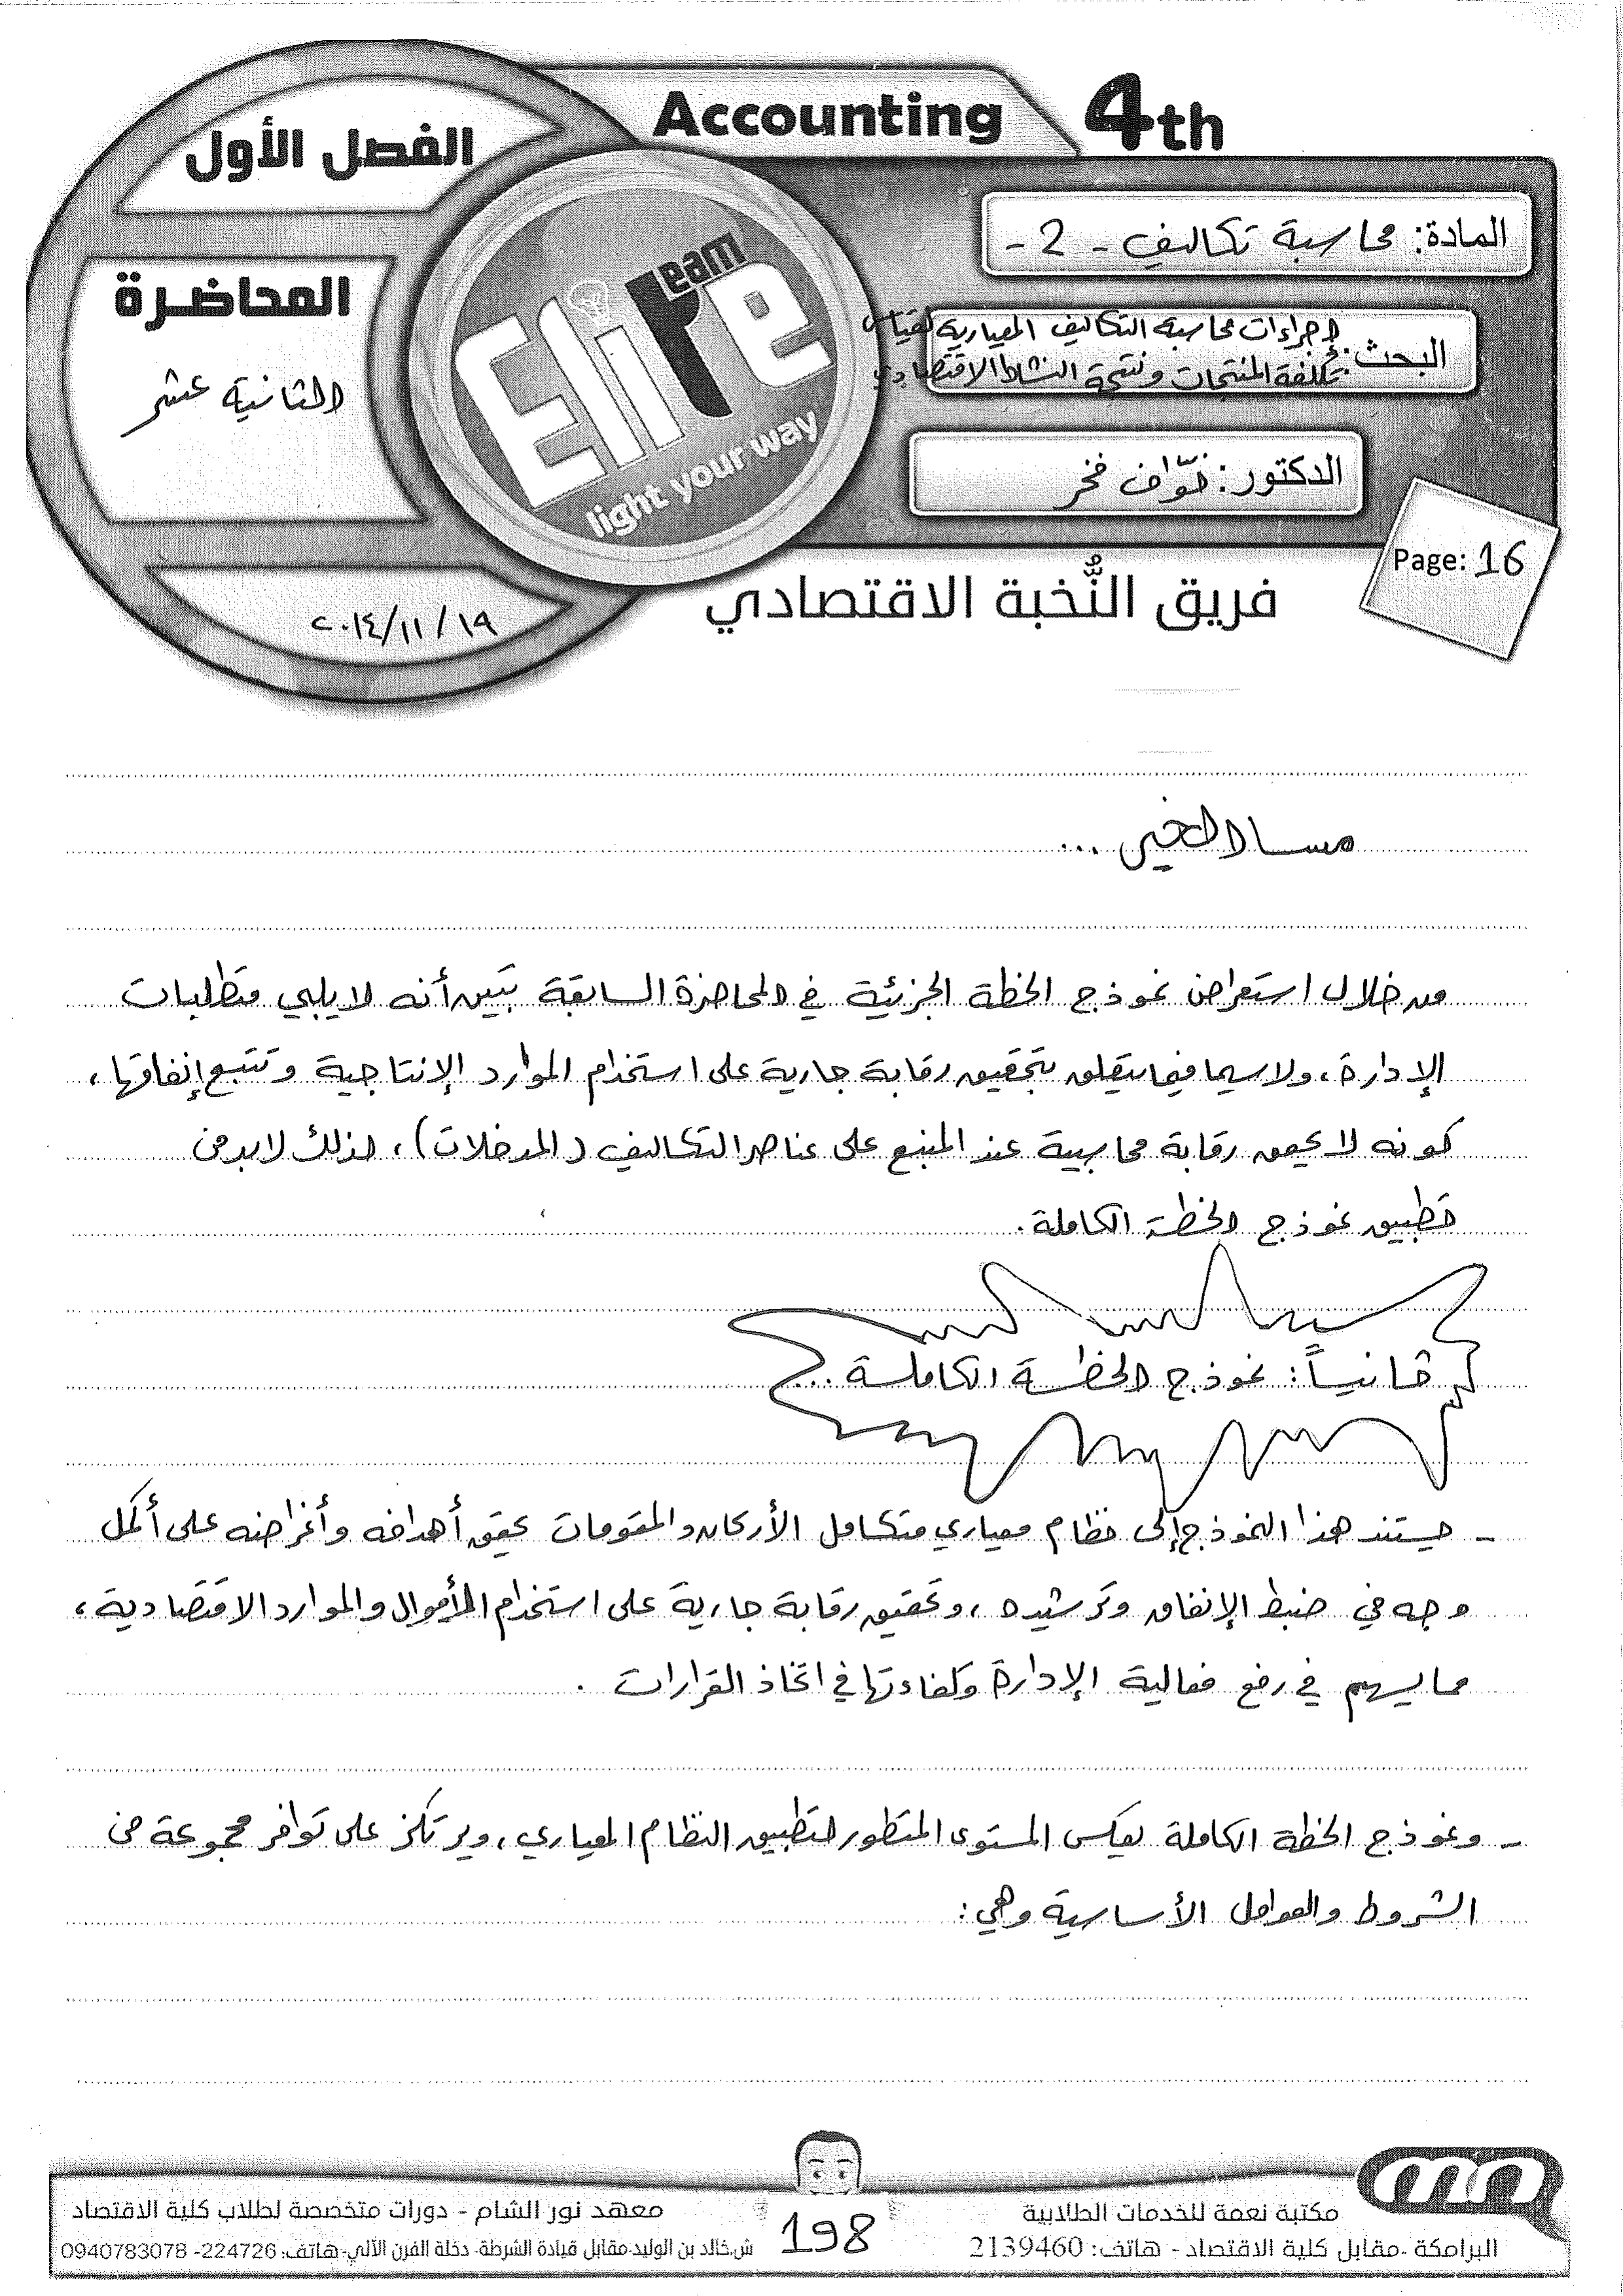 Accounting 4th
الفصل الأول
المادة: محاسبة تكاليف - 2 -
البحث: إجراءات محاسبة التكاليف المعيارية لقياس
تكلفة المنتجات ونتيجة النشاط الاقتصادي
المحاضرة
الثانية عشر
Elite Team
light your way
الدكتور: نوّاف فخر
Page: 16
فريق النُّخبة الاقتصادي
٢٠١٤/١١/١٩
مساء الخير ...
من خلال استعراض نموذج الخطة الجزئية في المحاضرة السابقة تبين أنه لا يلبي متطلبات
الإدارة، ولا سيما فيما يتعلق بتحقيق رقابة جارية على استخدام الموارد الإنتاجية وتتبع إنفاقها،
كونه لا يحقق رقابة محاسبية عند المنبع على عناصر التكاليف (المدخلات)، لذلك لابد من
تطبيق نموذج الخطة الكاملة.
ثانياً: نموذج الخطة الكاملة ...
- يستند هذا النموذج إلى نظام معياري متكامل الأركان والمقومات يحقق أهدافه وأغراضه على أكمل
وجه في ضبط الإنفاق وترشيده، وتحقيق رقابة جارية على استخدام الأموال والموارد الاقتصادية،
مما يسهم في رفع فعالية الإدارة وكفاءتها في اتخاذ القرارات.
- ونموذج الخطة الكاملة يعكس المستوى المتطور لتطبيق النظام المعياري، ويرتكز على توافر مجموعة من
الشروط والعوامل الأساسية وهي:
مكتبة نعمة للخدمات الطلابية
البرامكة - مقابل كلية الاقتصاد - هاتف: 2139460
198
معهد نور الشام - دورات متخصصة لطلاب كلية الاقتصاد
ش.خالد بن الوليد-مقابل قيادة الشرطة- دخلة الفرن الآلي-هاتف: 224726- 0940783078